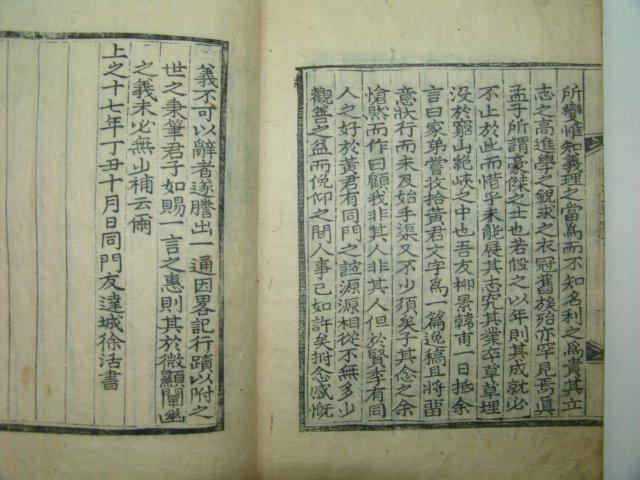 所變惟知義理之當爲而不知名利之爲貴其立
志之高進學之銳求之衣冠舊族殆亦罕見焉眞
孟子所謂豪傑之士也若假之以年則其成就必
不止於此而惜乎未能展其志究其業卒草草埋
没於窮山絶峽之中也吾友柳景韓甫一日抵余
言曰家弟嘗收拾黃君文字爲一篇逸稿且將留
意狀行而未及始手渠又不少須矣子其念之余
愴然而作曰顧我非其人非其人但於賢季有同
人之好於黃君有同門之誼源源相從不無多少
觀善之益而俛仰之間人事已如許矣拊念感慨
義不可以辭者遂謄出一通因畧記行蹟以附之
世之秉筆君子如賜一言之惠則其於微顯闡幽
之義未必無少補云爾
上之十七年丁丑十月日同門友達城徐活書